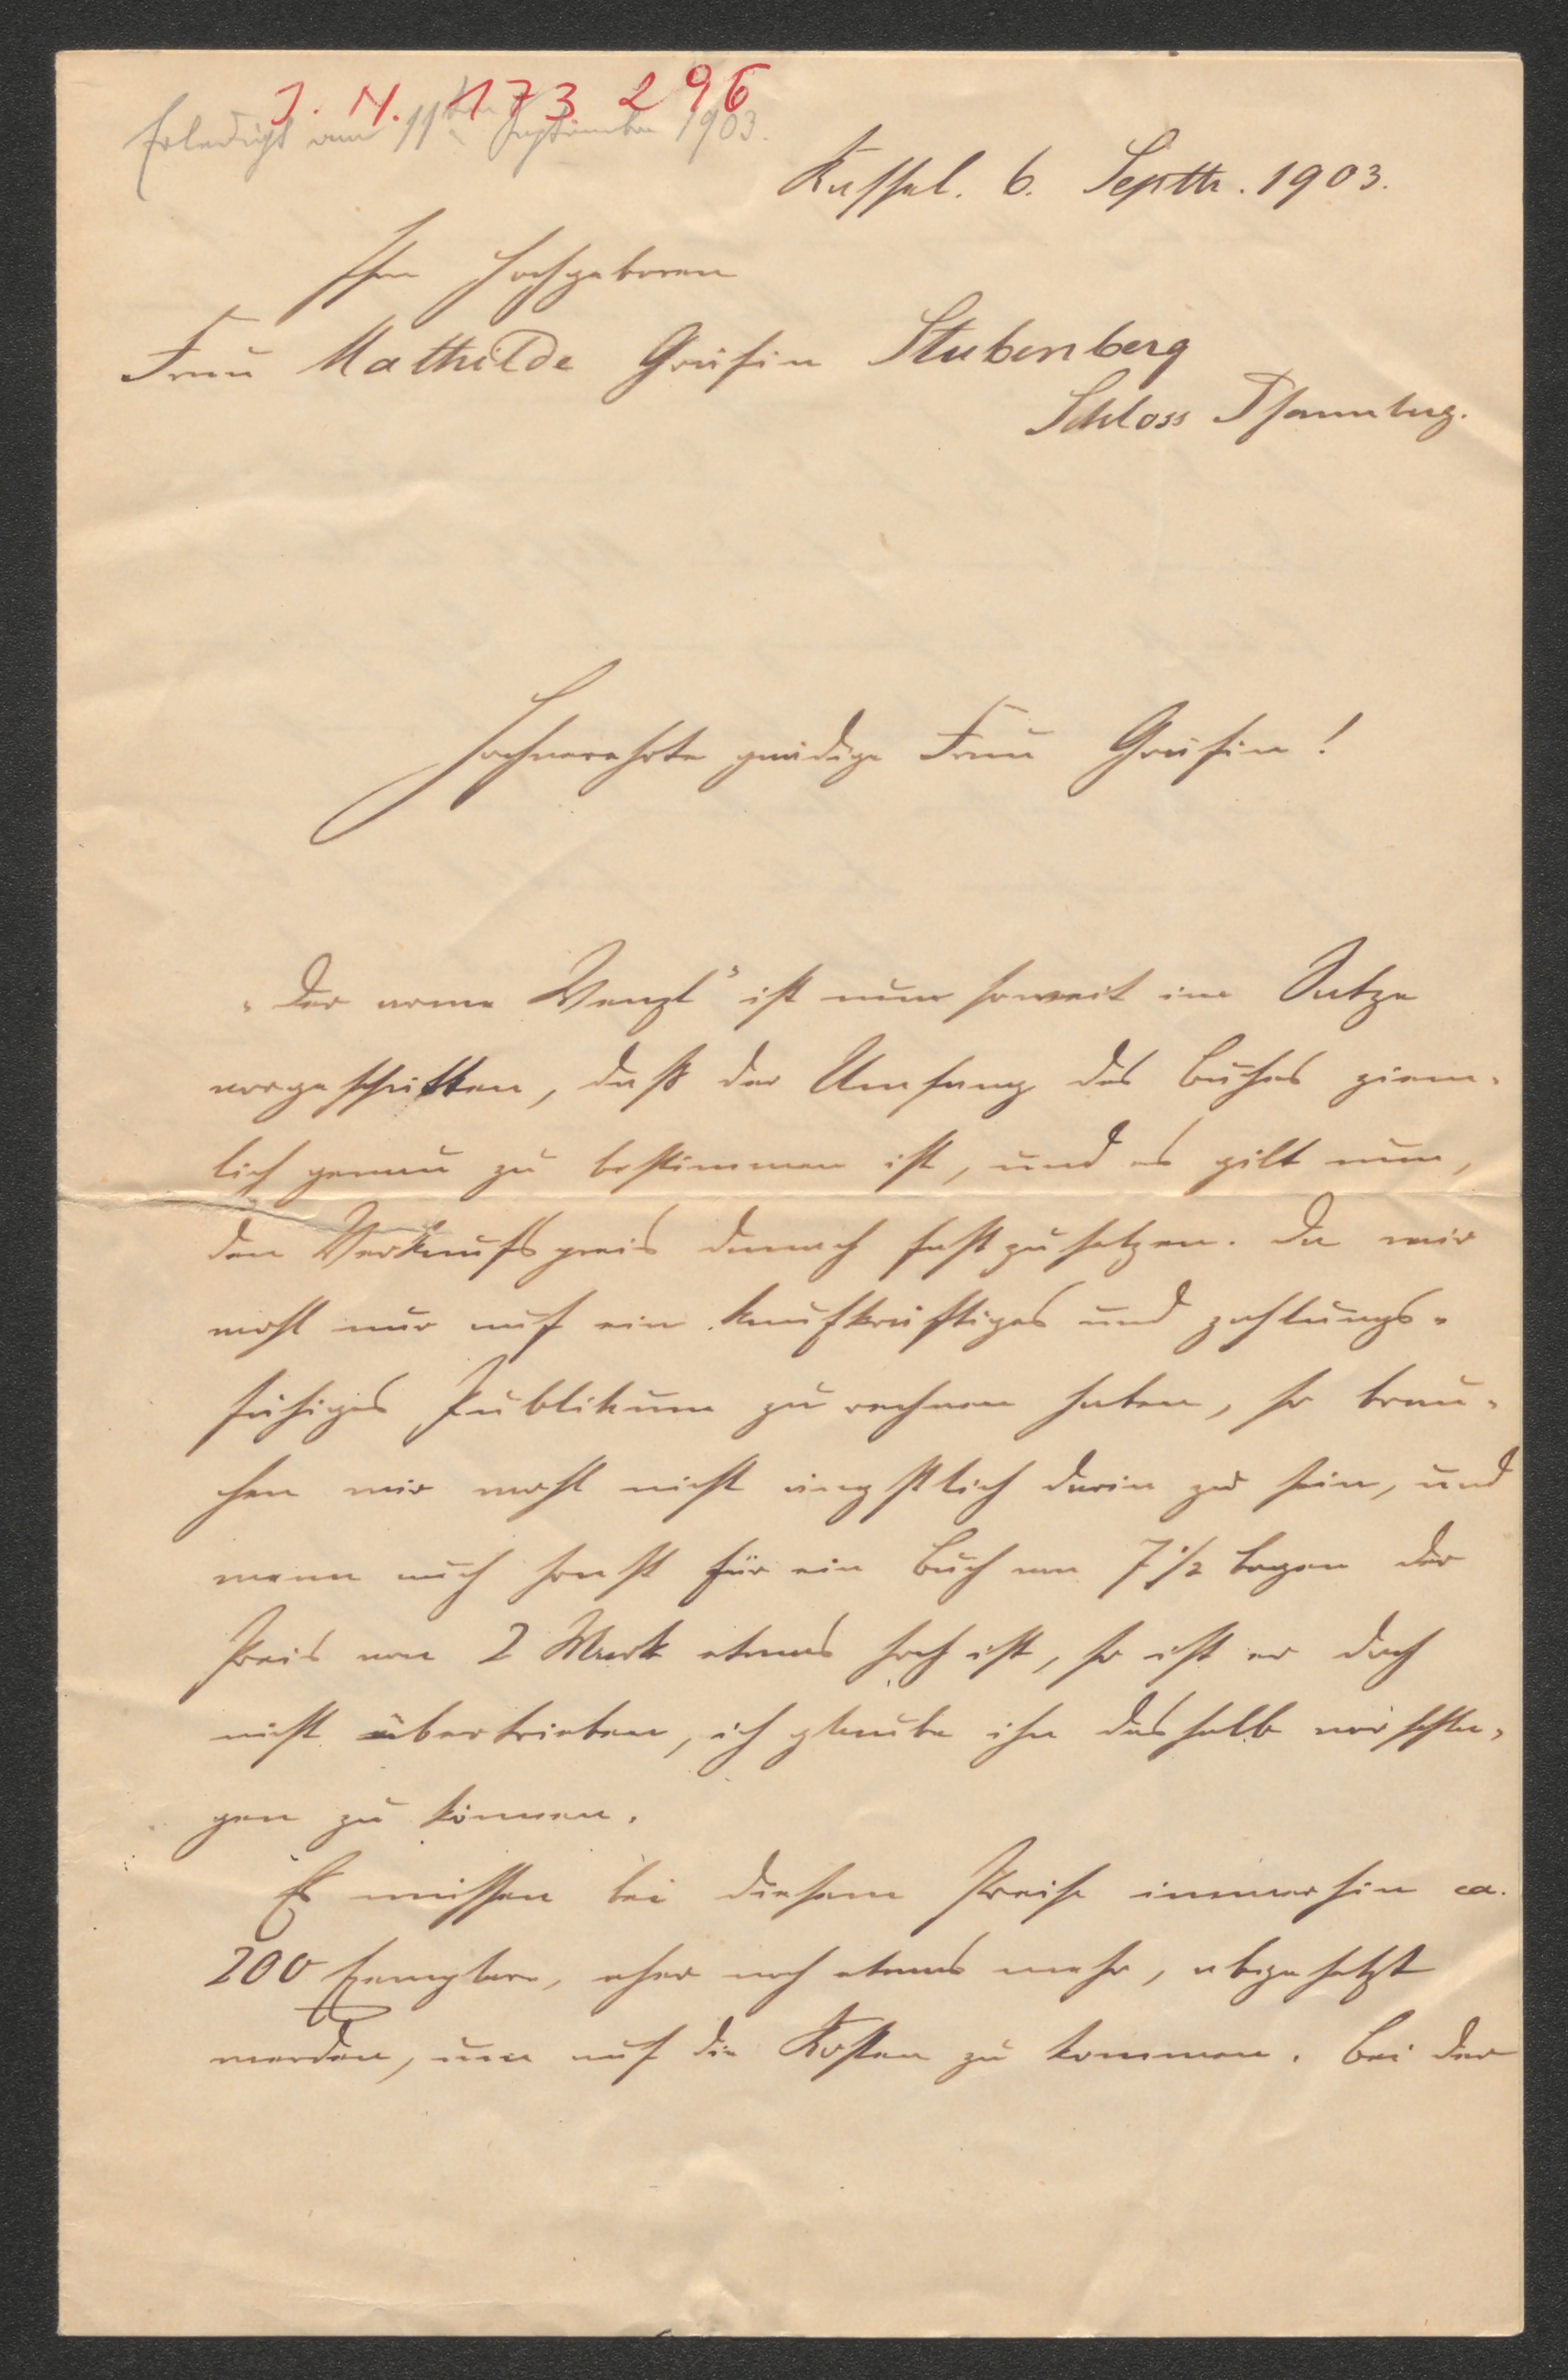 J. N. 173 296
Erledigt am 11ten September 1903.
Kassel. 6. Septbr. 1903.
Ihrer Hochgeboren
Frau Mathilde Gräfin Stubenberg
Schloss Pfannberg.
Hochverehrte gnädige Frau Gräfin!
„Der arme Wenzl" ist nun soweit im Satze
vorgeschritten, daß der Umfang des Buches ziem-
lich genau zu bestimmen ist, und es gilt nun,
den Verkaufspreis danach festzusetzen. Da wir
wohl nur auf ein kaufkräftiges und zahlungs-
fähiges Publikum zu rechnen haben, so brau-
chen wir wohl nicht ängstlich darin zu sein, und
wenn auch sonst für ein Buch von 7 1/2 Bogen der
Preis von 2 Mark etwas hoch ist, so ist er doch
nicht übertrieben, ich glaube ihn deshalb vorschla-
gen zu können.
Es müssen bei diesem Preise immerhin ca.
200 Exemplare, eher noch etwas mehr, abgesetzt
werden, um auf die Kosten zu kommen. Bei der